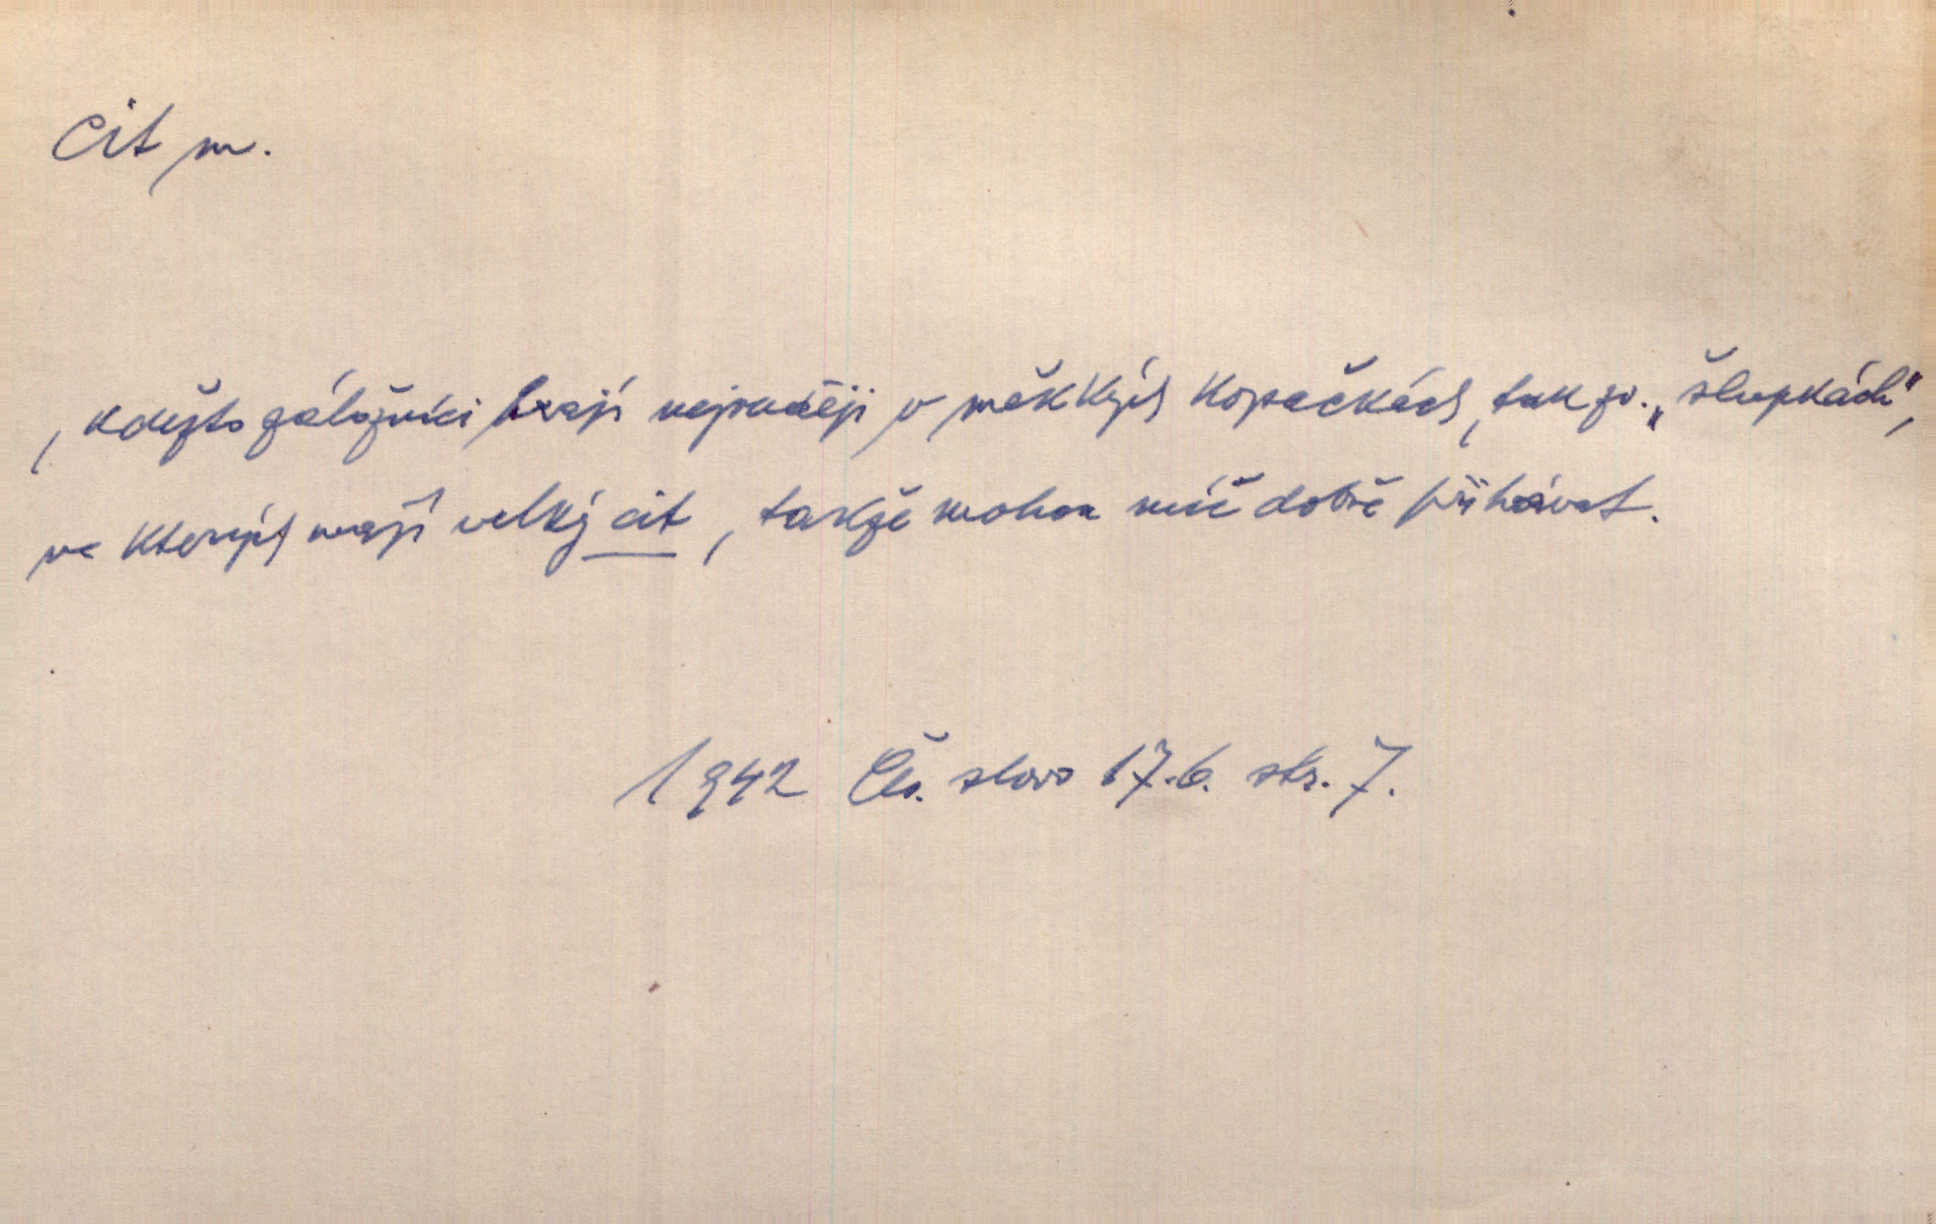 cit m.
, kdežto záložníci hrají nejraději v měkkých kopačkách, tak zv. „šlupkách",
ve kterých mají velký cit, takže mohou míč dobře přihrávat.
1942 Čes. slovo 17.6. str. 7.